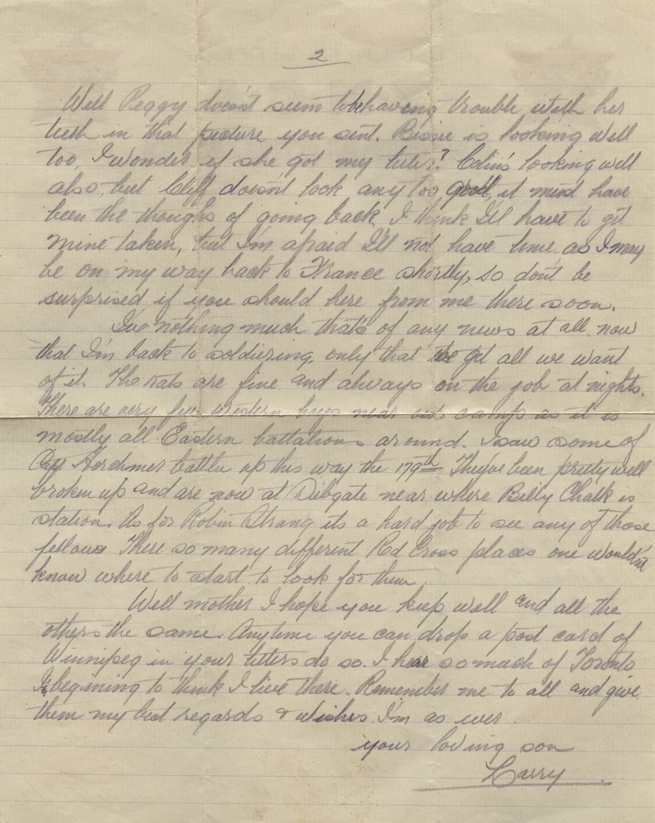 2
Well Peggy doesn't seem to be having trouble with her
teeth in that picture you sent. Bisne is looking well
too, I wonder if she got my letter? Colin's looking well
also, but Cliff doesn't look any too good, it must have
been the thoughs of going back. I think I'll have to get
mine taken, but I'm afraid I'll not have time as I may
be on my way back to France shortly, so don't be
surprised if you should here from me there soon.
I've nothing much that's of any news at all now
that I'm back to soldiering, only that we get all we want
of it. The rats are fine and always on the job at nights.
There are very few Western boys near our camp as it is
mostly all Eastern battalions around. I saw some of
Herchmer battln up this way the 179th They've been pretty well
broken up and are now at Dibgate near where Billy Chalk is
station. As for Robin Strang its a hard job to see any of those
fellows There so many different Red Cross places one wouldn't
know where to start to look for them.
Well mother I hope you keep well and all the
others the same. Anytime you can drop a post card of
Winnipeg in your letters do so. I hear so much of Toronto
I'm begining to think I live there. Remember me to all and give
them my best regards & wishes. I'm as ever
your loving son
Larry